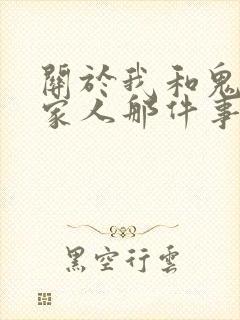 關於我和鬼
家人那件事
黑空行雲